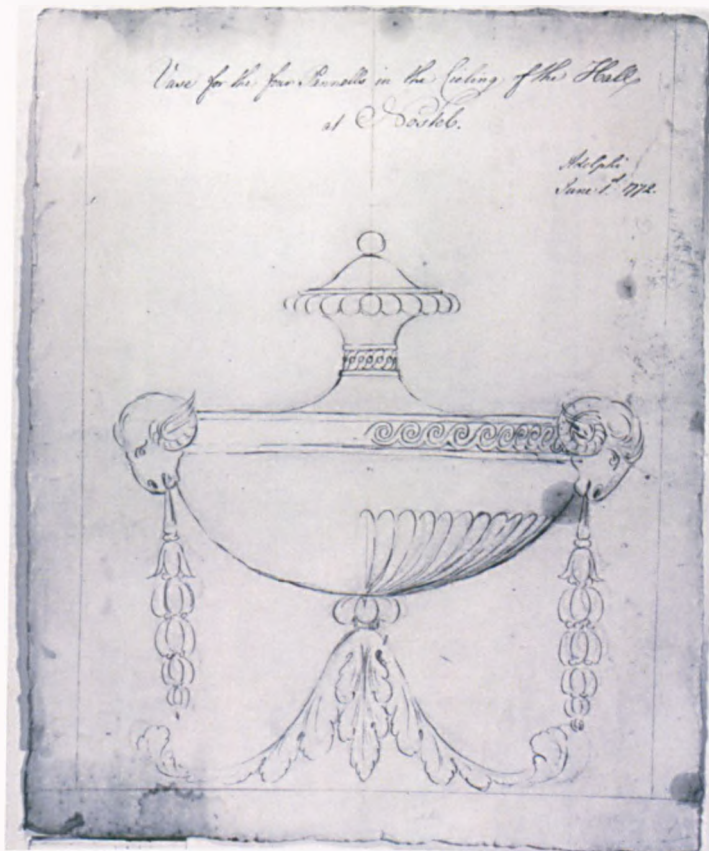 Vase for the four Pannells in the Cieling of the Hall,
at Nostel.
Adelphi
June 1st 1772.